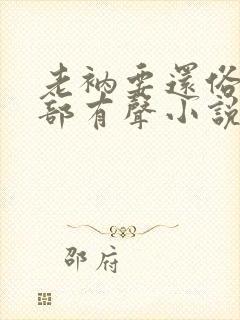 老衲要還俗
部有聲小說
邵府